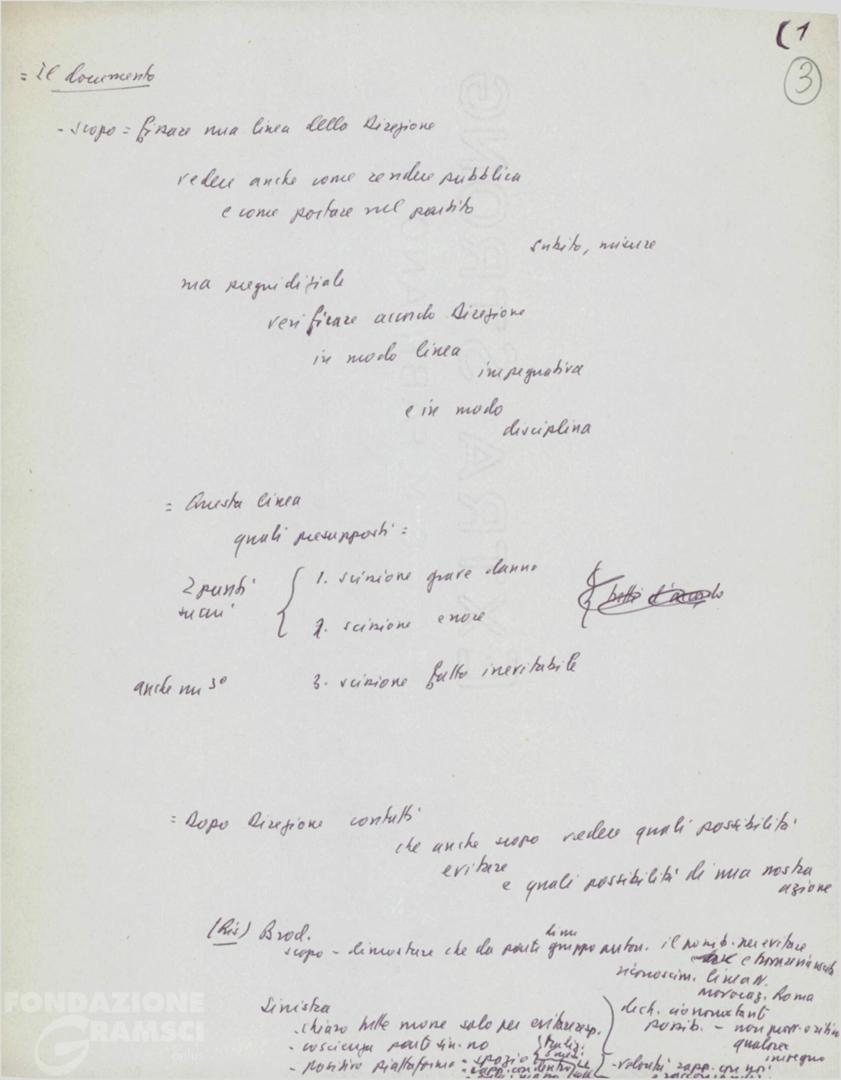 (1
3
= Il documento
- scopo = fissare una linea della Direzione
vedere anche come rendere pubblica
e come portare nel partito
subito, misure
ma pregiudiziale
verificare accordo Direzione
in modo linea
impegnativa
e in modo
disciplina
= Questa linea
quali presupposti =
2 punti
sicuri
1. scissione grave danno
2. scissione errore
tutti d'accordo
anche un 3°
3. scissione fatto inevitabile
= Dopo Direzione contatti
che anche scopo vedere quali possibilità
evitare
e quali possibilità di una nostra
azione
(Ris) Brod.
scopo - dimostrare che da parte gruppo auton. il possib. per evitare
riconoscim. linea N.
Roma
Sinistra
- chiaro tutte mosse solo per evitare resp.
- coscienza
- positivo piattaforma - spazio
dich. ciononostanti
possib. -
qualora
- volontà rapp. con noi
FONDAZIONE
GRAMSCI